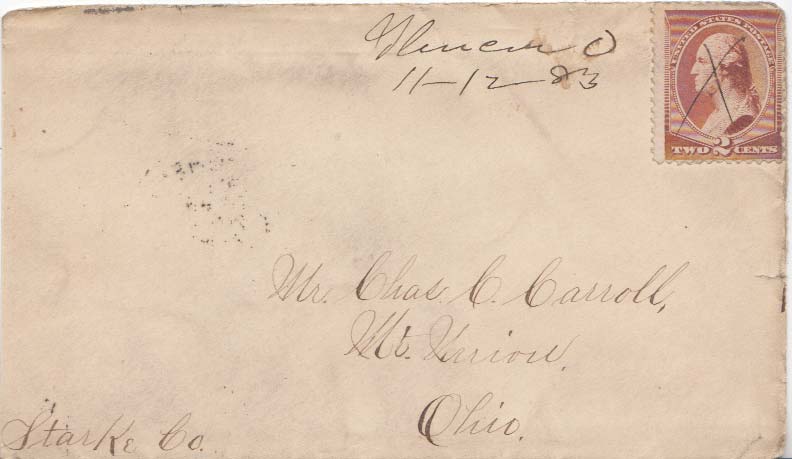 Glencoe O
11-12-83
UNITED STATES POSTAGE
TWO 2 CENTS
Mr. Chas. C. Carroll,
Mt. Union,
Ohio.
Starke Co.